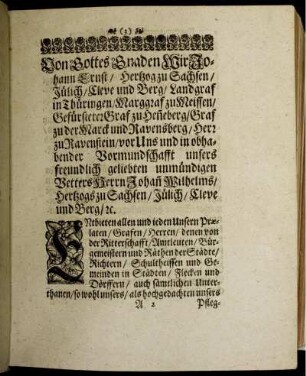 (3)
Von Gottes Gnaden Wir Jo-
hann Ernst / Hertzog zu Sachsen /
Jülich / Cleve und Berg / Landgraf
in Thüringen / Marggraf zu Meissen /
Gefürsteter Graf zu Heñeberg / Graf
zu der Marck und Ravensberg / Herr
zu Ravenstein / vor Uns und in obha-
bender Vormundschafft unsers
freundlich geliebten unmündigen
Vetters Herrn Johañ Wilhelms /
Hertzogs zu Sachsen / Jülich / Cleve
und Berg / ꝛc.
ENtbieten allen und jeden Unsern Præ-
laten / Grafen / Herren / denen von
der Ritterschafft / Amtleuten / Bür-
gemeistern und Räthen der Städte /
Richtern / Schultheissen und Ge-
meinden in Städten / Flecken und
Dörffern / auch sämtlichen Unter-
thanen / so wohl unsers / als hochgedachten unsers
A 2 Pfleg-